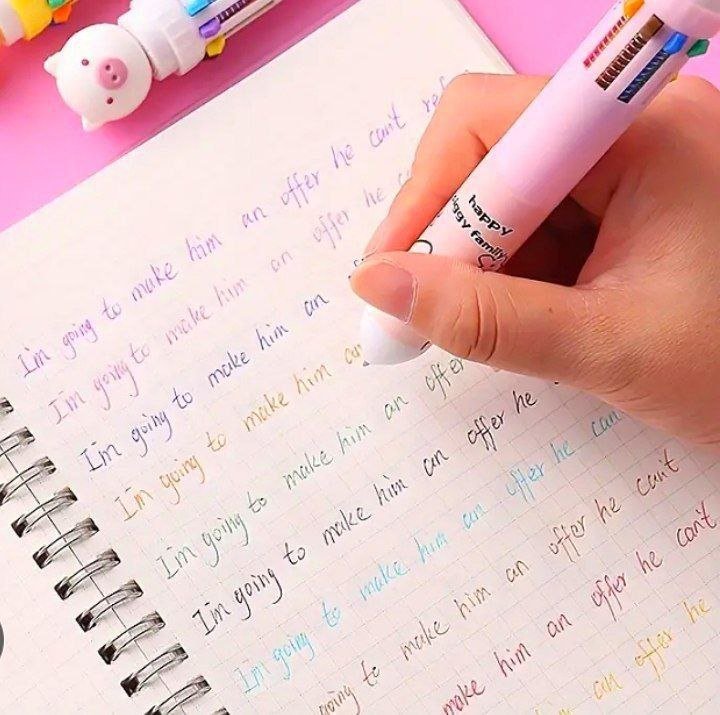 I'm going to make him an offer he can't
I'm going to make him an offer he
I'm going to make him an
I'm going to make him an
I'm going to make him an offer
I'm going to make him an offer he
I'm going to make him an offer he can
going to make him an offer he can't
make him an offer he can't
him an offer he
happy
piggy family